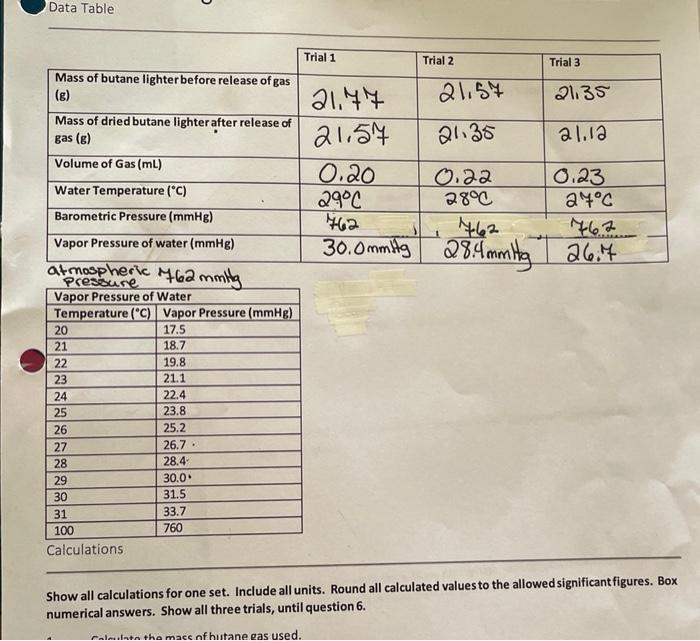 Data Table
Trial 1 Trial 2 Trial 3
Mass of butane lighter before release of gas (g) 21.77 21.57 21.35
Mass of dried butane lighter after release of gas (g) 21.57 21.35 21.12
Volume of Gas (mL) 0.20 0.22 0.23
Water Temperature (°C) 29°C 28°C 27°C
Barometric Pressure (mmHg) 762 762 762
Vapor Pressure of water (mmHg) 30.0mmHg 28.4mmHg 26.7
atmospheric 762 mmHg
pressure
Vapor Pressure of Water
Temperature (°C) Vapor Pressure (mmHg)
20 17.5
21 18.7
22 19.8
23 21.1
24 22.4
25 23.8
26 25.2
27 26.7
28 28.4
29 30.0
30 31.5
31 33.7
100 760
Calculations
Show all calculations for one set. Include all units. Round all calculated values to the allowed significant figures. Box
numerical answers. Show all three trials, until question 6.
Calculate the mass of butane gas used.